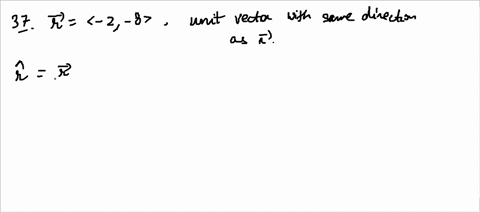 37. r⃗ = <-2, -8> . unit vector with same direction
as r⃗.
r̂ = r⃗